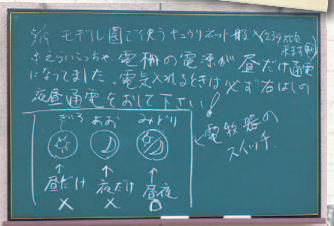 5/6 モデル園で使うキュウリネット般入
電柵の電源が昼だけ通電
になってました。電気入れるときは必ず右はしの
夜昼通電をおして下さい!
きいろ あお みどり
昼だけ 夜だけ 昼夜
× × ○
←電牧器の
スイッチ